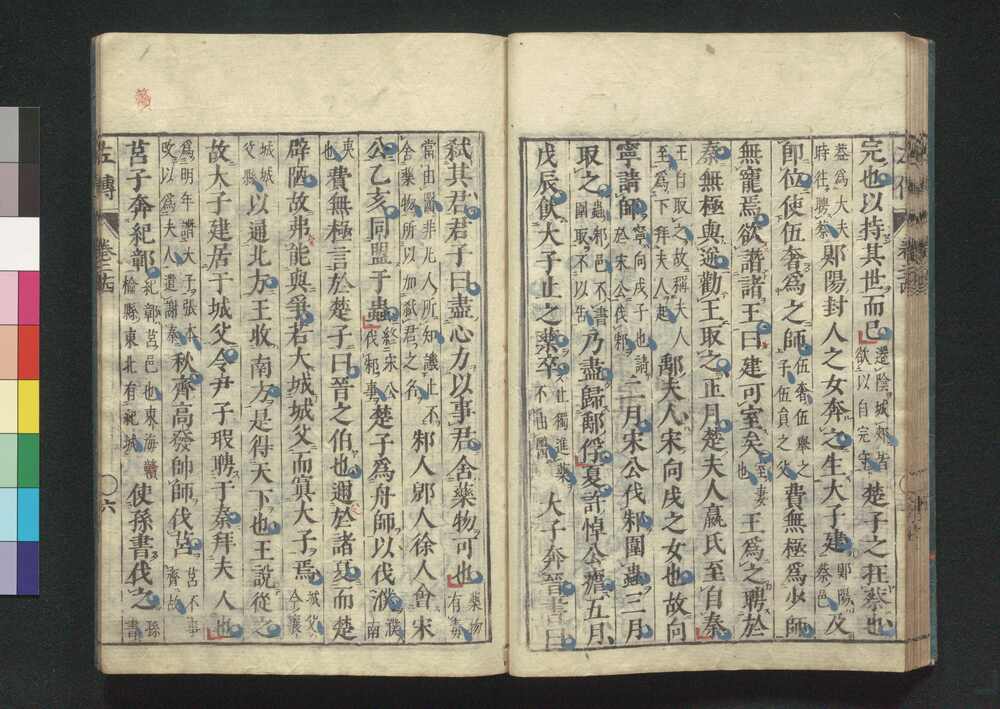 完也以持其世而已還陰城郟皆欲以自完守楚子之在蔡也
蓋爲大夫時往聘蔡郹陽封人之女奔之生大子建郹陽蔡邑及
即位使伍奢爲之師伍奢伍舉之子伍員之父費無極爲少師
無寵焉欲譖諸王曰建可室矣室妻也王爲之聘於
秦無極與逆勸王取之正月楚夫人嬴氏至自秦
王自取之故稱夫人至爲下拜夫人起鄅夫人宋向戌之女也故向
寧請師寧向戌子也請於宋公伐邾二月宋公伐邾圍蟲三月
取之蟲邾邑不書圍取不以告乃盡歸鄅俘夏許悼公瘧五月
戊辰飲大子止之藥卒止獨進藥不由醫大子奔晉書曰
弑其君君子曰盡心力以事君舍藥物可也藥物有毒
當由醫非凡人所知譏止不舍藥物所以加弑君之名邾人郳人徐人會宋
公乙亥同盟于蟲終宋公伐邾事楚子爲舟師以伐濮濮南
夷也費無極言於楚子曰晉之伯也邇於諸夏而楚
辟陋故弗能與爭若大城城父而寘大子焉城父今襄
城城父縣以通北方王收南方是得天下也王說從之
故大子建居于城父令尹子瑕聘于秦拜夫人也
爲明年譖大子張本改以爲夫人遣謝秦秋齊高發帥師伐莒莒不事齊故
莒子奔紀鄣紀鄣莒邑也東海贛榆縣東北有紀城使孫書伐之孫書
左傳
卷二十四
六